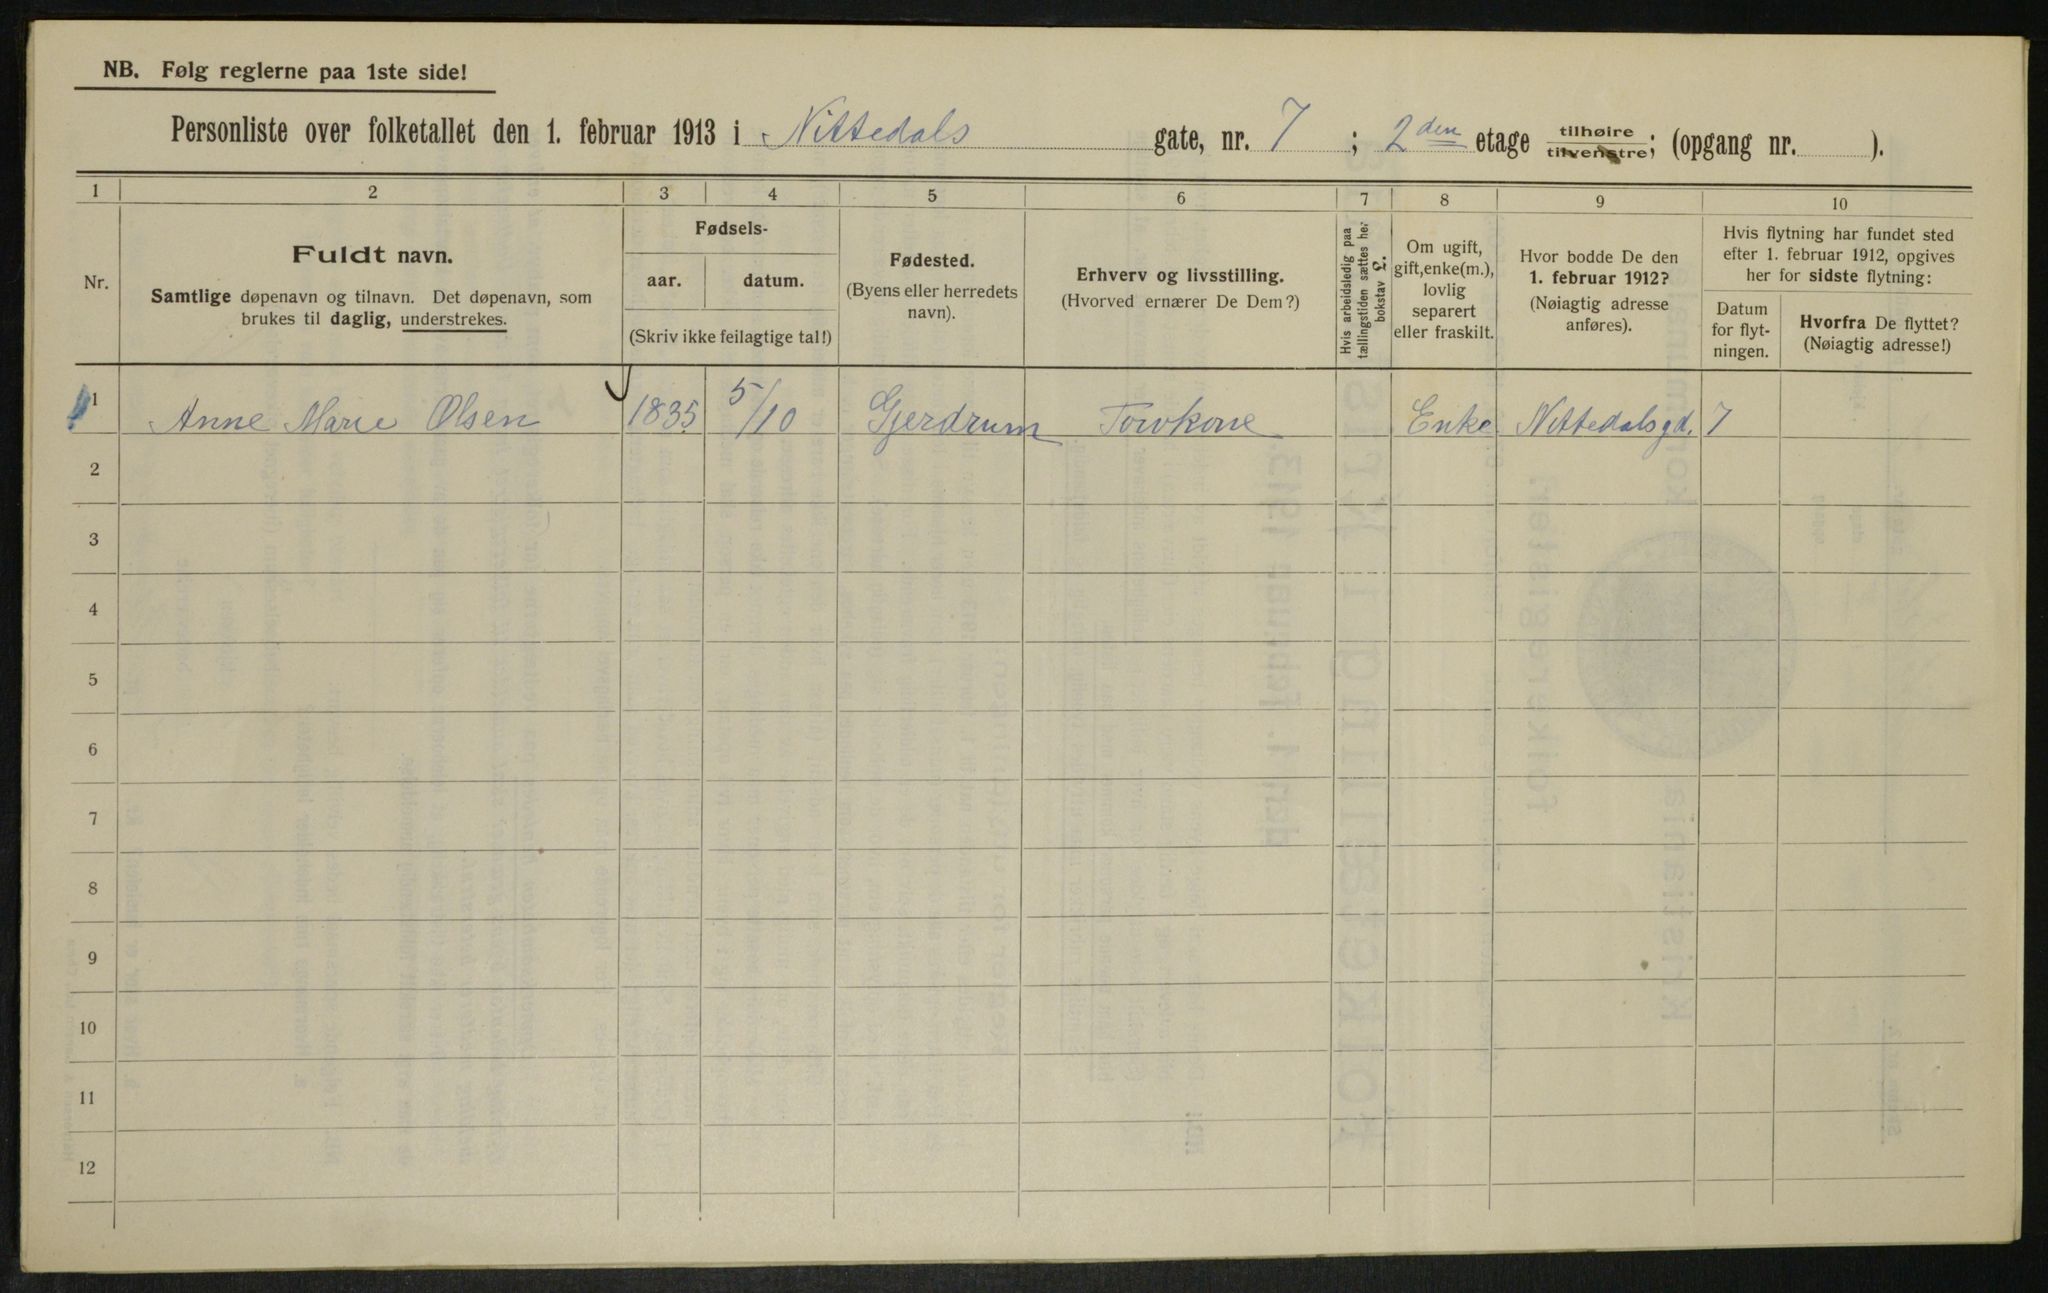 NB. Følg reglerne paa 1ste side!
Personliste over folketallet den 1. februar 1913 i Nittedals gate, nr. 7 ; 2den etage tilhøire tilvenstre; (opgang nr. ).
1 2 3 4 5 6 7 8 9 10
Nr.
Fuldt navn.
Samtlige døpenavn og tilnavn. Det døpenavn, som
brukes til daglig, understrekes.
Fødsels-
aar. datum.
(Skriv ikke feilagtige tal!)
Fødested.
(Byens eller herredets
navn).
Erhverv og livsstilling.
(Hvorved ernærer De Dem?)
Hvis arbeidsledig paa
tællingstiden sættes her
bokstav L.
Om ugift,
gift, enke(m.),
lovlig
separert
eller fraskilt.
Hvor bodde De den
1. februar 1912?
(Nøiagtig adresse
anføres).
Hvis flytning har fundet sted
efter 1. februar 1912, opgives
her for sidste flytning:
Datum
for flyt-
ningen.
Hvorfra De flyttet?
(Nøiagtig adresse!)
1 Anne Marie Olsen 1835 5/10 Gjerdrum Torvkone Enke Nittedalsgd. 7
2
3
4
5
6
7
8
9
10
11
12